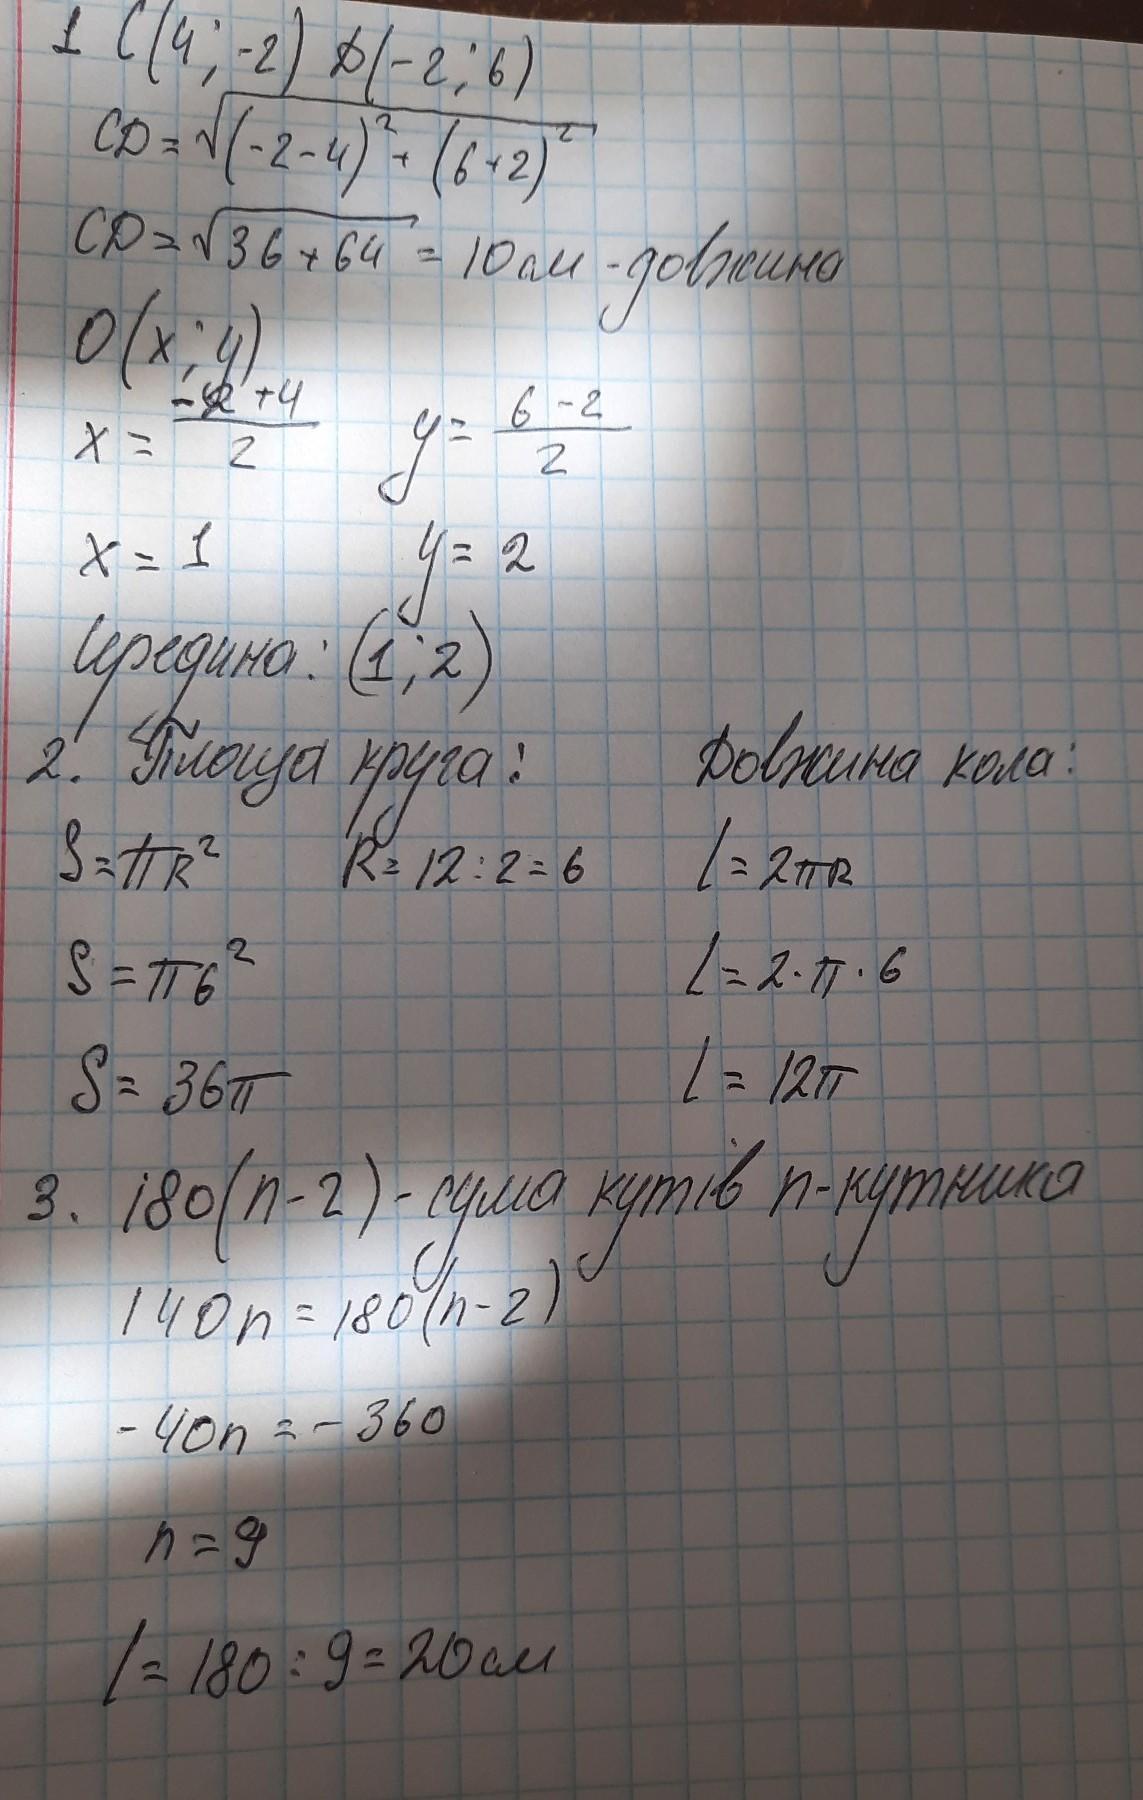 1 C(4; -2) D(-2; 6)
CD = √(-2-4)² + (6+2)²
CD = √36+64 = 10см - довжина
O(x; y)
x = -2+4/2 y = 6-2/2
x = 1 y = 2
Середина: (1; 2)
2. Площа круга: Довжина кола:
S = πR² R = 12 : 2 = 6 l = 2πR
S = π6² l = 2·π·6
S = 36π l = 12π
3. 180(n-2) - сума кутів n-кутника
140n = 180(n-2)
-40n = -360
n = 9
l = 180 : 9 = 20см